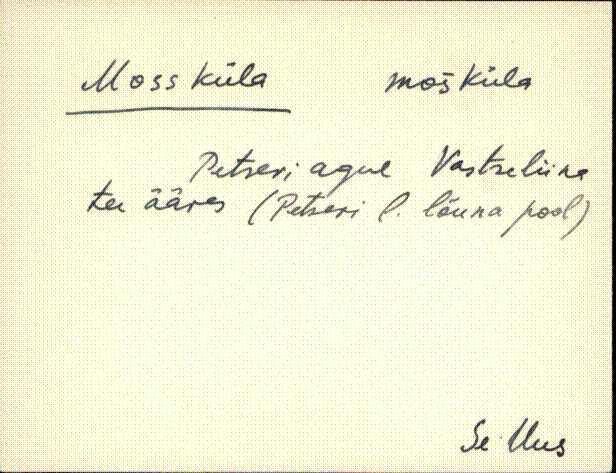 Mossküla mošküla
Petseri agul Vastseliina
tee ääres (Petseri l. lõuna pool)
Se Uus